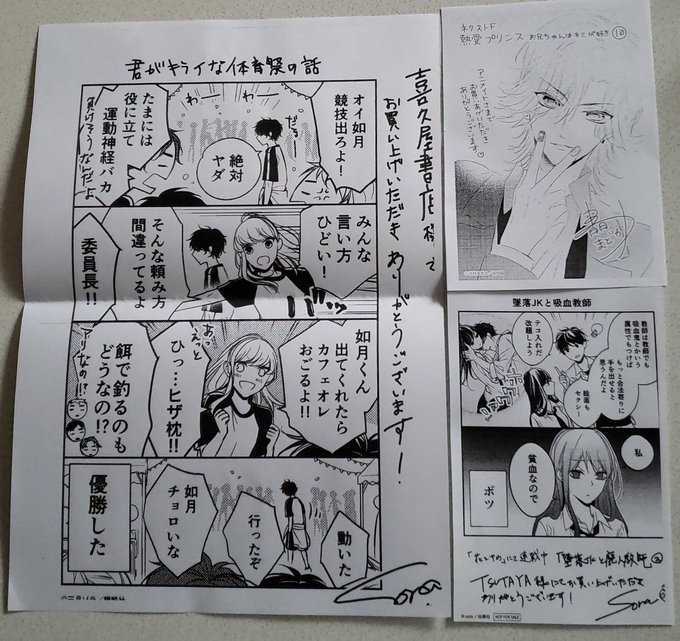 君がキライな体育祭の話
オイ如月
競技出ろよ!
わー
わー
だるー
絶対
ヤダ
たまには
役に立て
運動神経バカ
負けそうなんだよ
みんな
言い方
ひどい!
そんな頼み方
間違ってるよ
委員長!!
如月くん
出てくれたら
カフェオレ
おごるよ!!
あっ
えっと
ひっ…ヒザ枕!!
餌で釣るのも
どうなの!?
アリなの!?
動いた
行ったぞ
如月
チョロいな
優勝した
喜久屋書店様で
お買い上げいただきありがとうございます!
Sora.
ネクストF
熱愛プリンス お兄ちゃんはキミが好き⑩
アニメイトさまで
お買いあげいただき
ありがとうございます♡
青月まどか
墜落JKと吸血教師
教師は教師でも
吸血鬼とかいう
属性でもつけば
もっと合法寄りに
手を出せると
思うんだよ
絵面も
セクシー
テコ入れだ
改題しよう
私
貧血なので
ボツ
「花とゆめ」にて連載中「墜落JKと廃人教師」②
TSUTAYA様にてお買い上げいただき
ありがとうございます!
Sora
©sora/白泉社 NOT FOR SALE